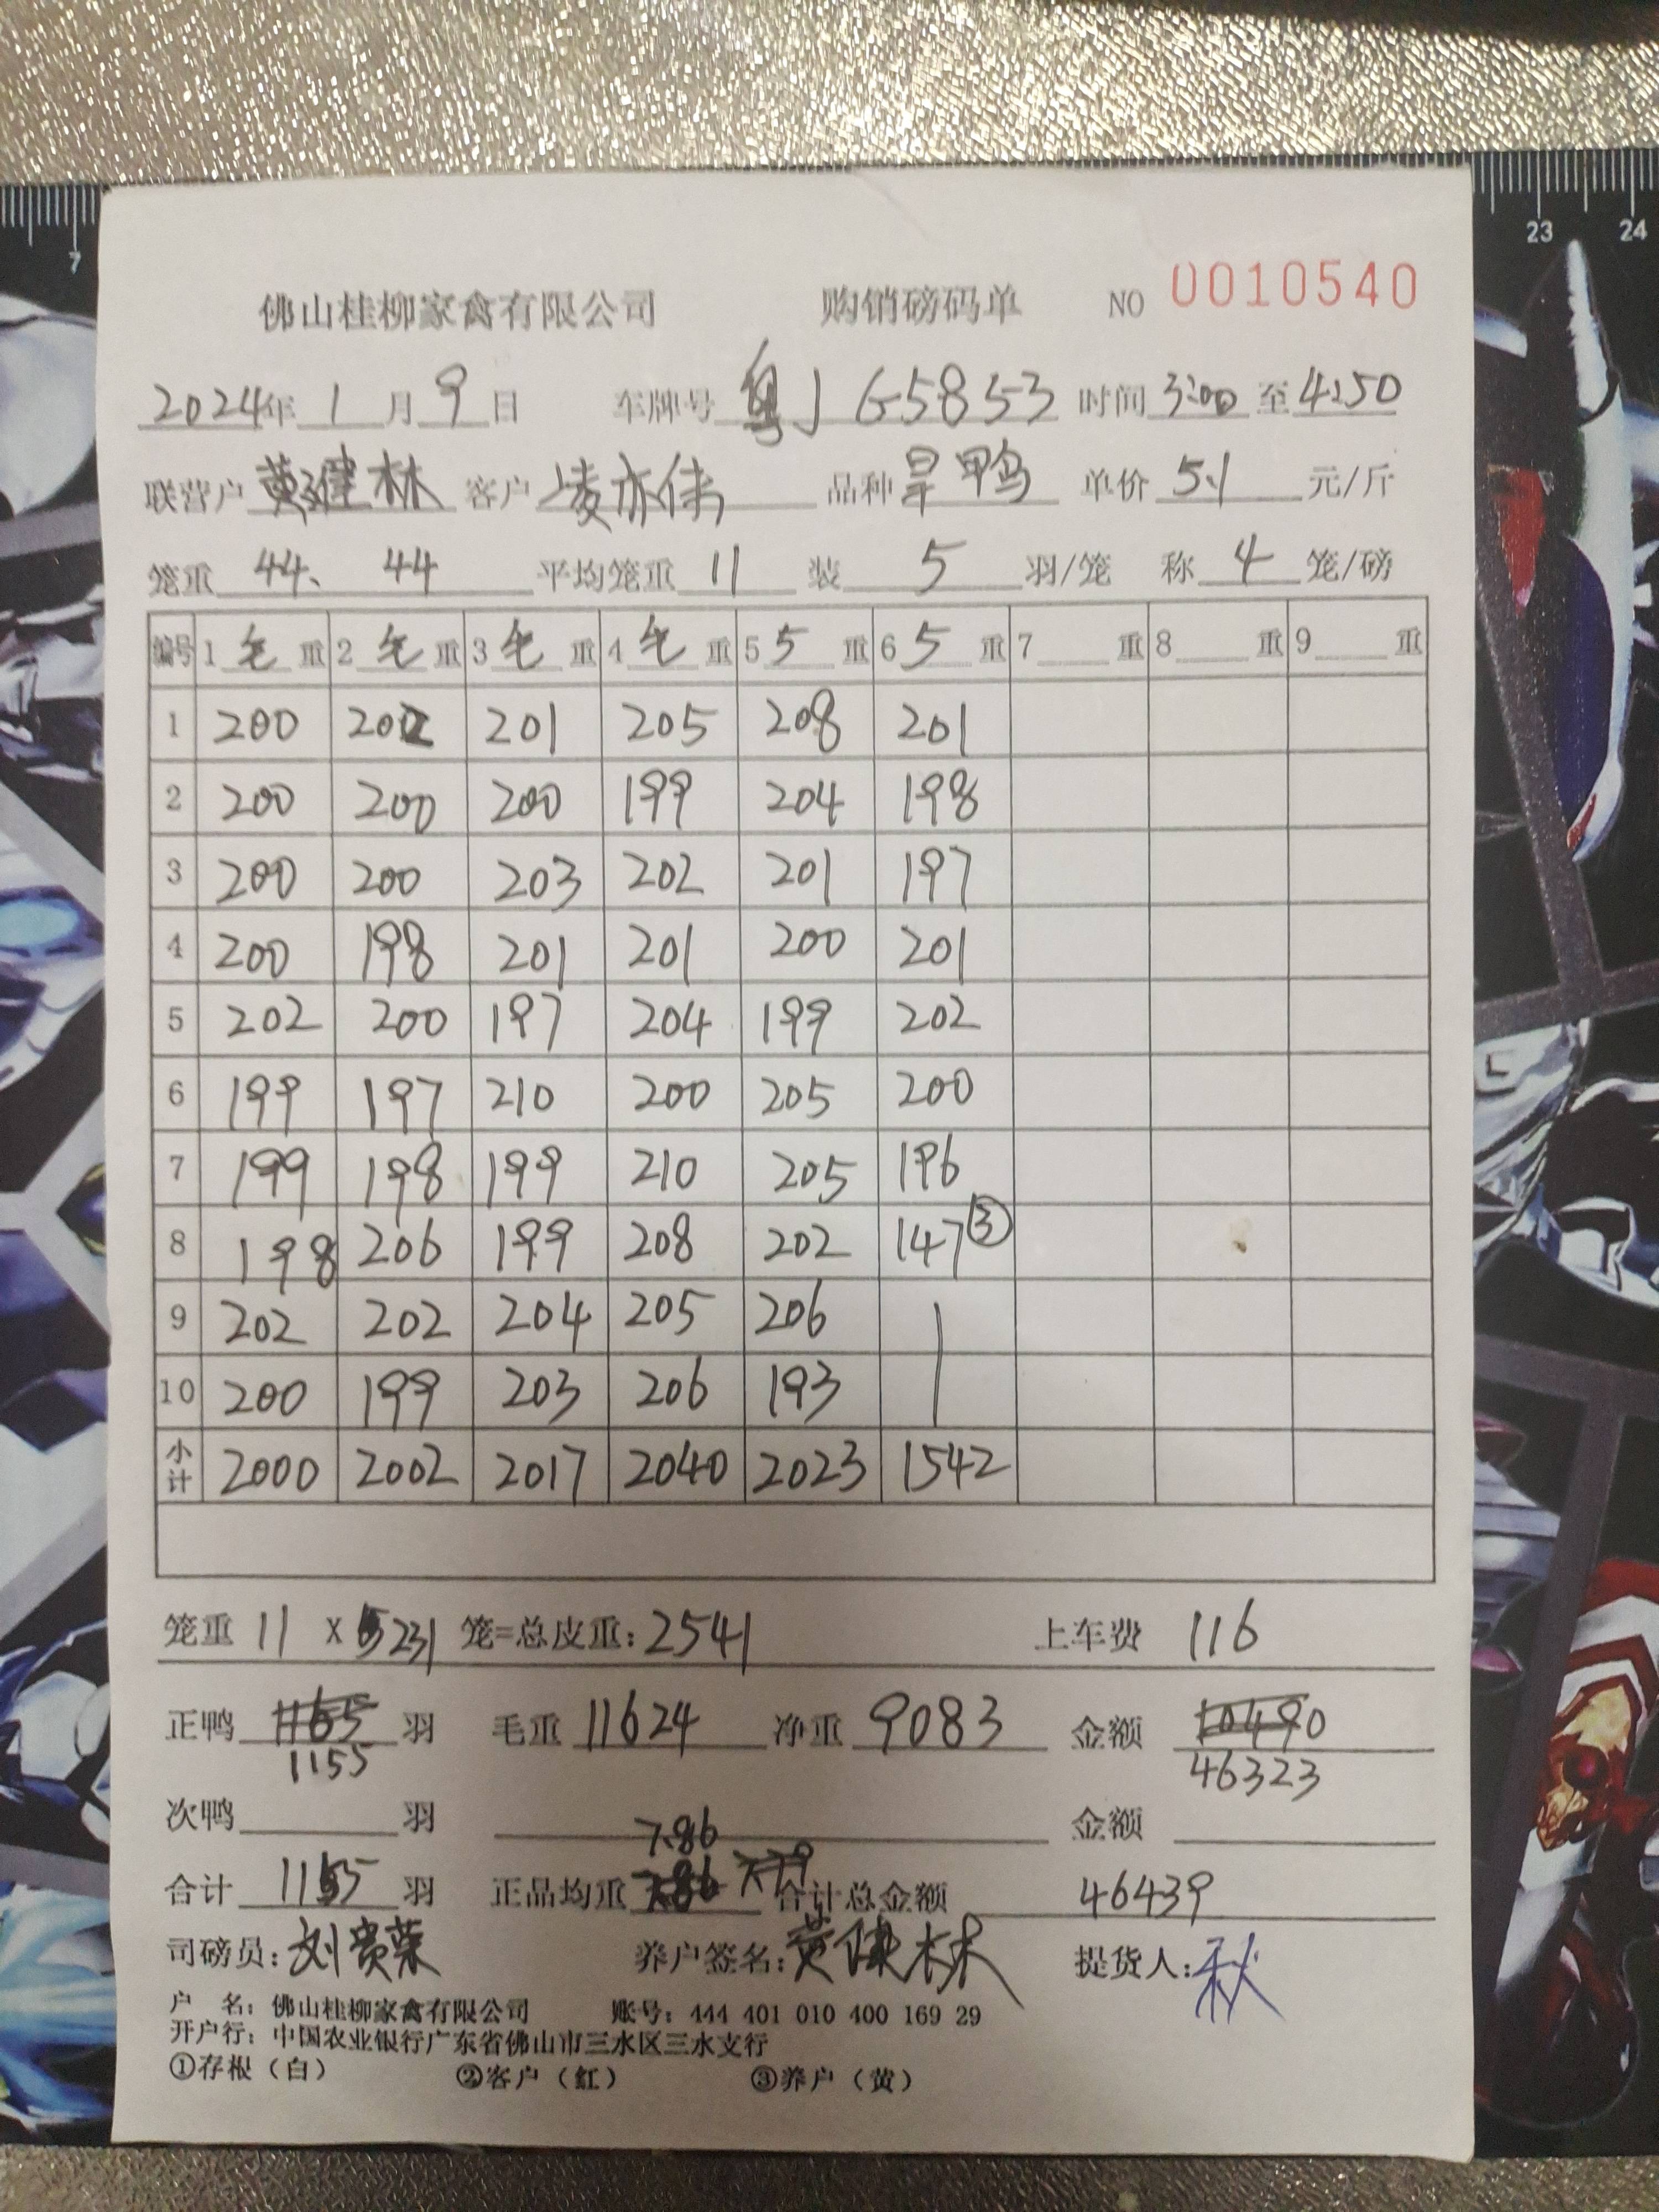 7
23 24
佛山桂柳家禽有限公司 购销磅码单 NO 0010540
2024年 1 月 9 日 车牌号 粤J G5853 时间 3:00 至 4:50
联营户 黄健林 客户 凌亦伟 品种 旱鸭 单价 5.1 元/斤
笼重 44、 44 平均笼重 11 装 5 羽/笼 称 4 笼/磅
编号 1 毛 重 2 毛 重 3 毛 重 4 毛 重 5 5 重 6 5 重 7 重 8 重 9 重
1 200 202 201 205 208 201
2 200 200 200 199 204 198
3 200 200 203 202 201 197
4 200 198 201 201 200 201
5 202 200 197 204 199 202
6 199 197 210 200 205 200
7 199 198 199 210 205 196
8 198 206 199 208 202 147 ③
9 202 202 204 205 206
10 200 199 203 206 193
小计 2000 2002 2017 2040 2023 1542
笼重 11 X 231 笼=总皮重: 2541 上车费 116
正鸭 1165 羽 毛重 11624 净重 9083 金额 10490
1155 46323
次鸭 羽 金额
7.86
合计 1155 羽 正品均重 7.86 7.79 合计总金额 46439
司磅员: 刘贵荣 养户签名: 黄健林 提货人: 秋
户 名: 佛山桂柳家禽有限公司 账号: 444 401 010 400 169 29
开户行: 中国农业银行广东省佛山市三水区三水支行
①存根（白） ②客户（红） ③养户（黄）